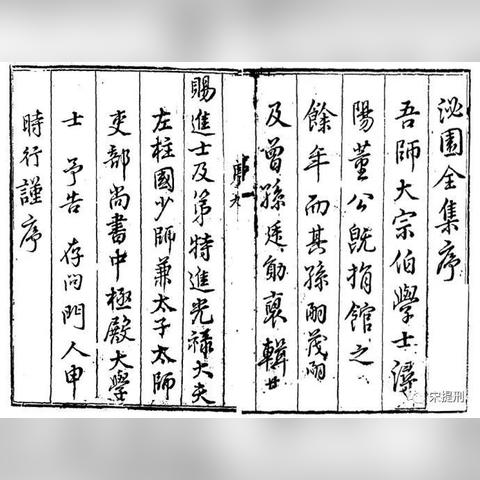 泌園全集序
吾師大宗伯學士潯
陽董公既捐館之
餘年而其孫嗣茂嗣
及曾孫廷勛裒輯廿
賜進士及第特進光祿大夫
左柱國少師兼太子太師
吏部尚書中極殿大學
士 予告 存問門人申
時行謹序
宋提刑